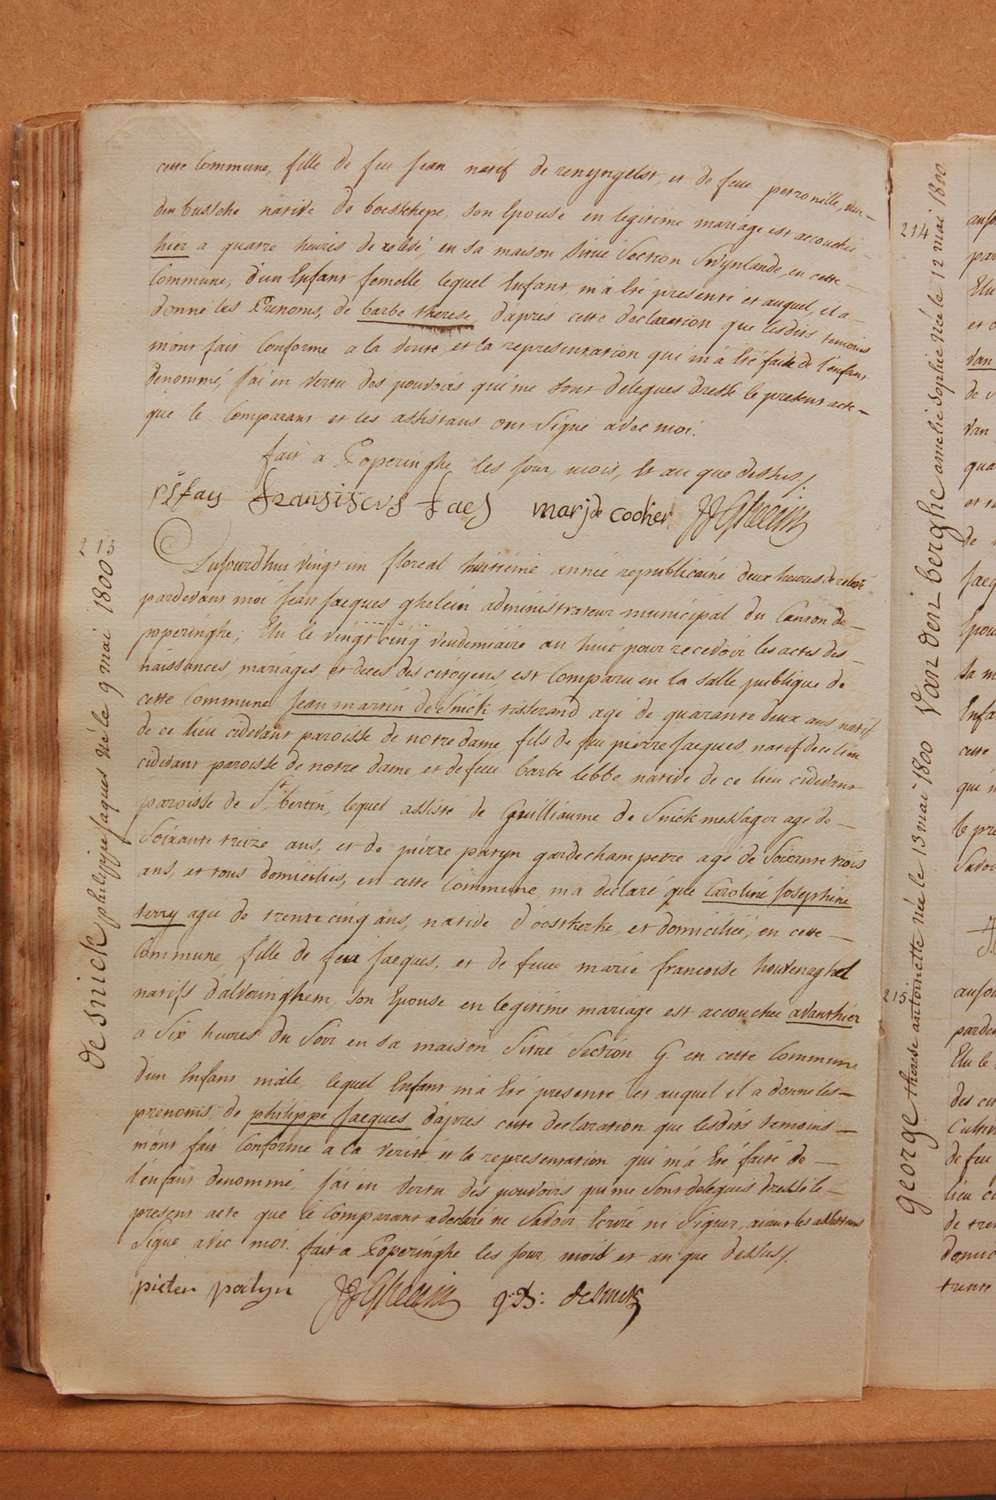 cette Commune, fille de feu Jean natif de renyngelst, et de feue petronille, van-
den bussche native de boeschepe, son Epouse en legitime mariage est accouchée
hier a quatre heures de relevé, en sa maison située Section Swynlande, en cette
Commune, d'un Enfant femelle lequel Enfant, m'a été presenté et auquel, il a
donné les Prenoms, de barbe therese, d'apres cette declaration que lesdits temoins
m'ont fait Conforme a la verité, et la representation qui m'a été faite de l'enfant
denommé, j'ai en vertu des pouvoirs qui me sont delegués dressé le present acte
que le Comparant et les assistans ont Signé avec moi.
fait a Poperinghe les jour, mois, et an que dessus/.
fransiscus faes marj de cocher JJGhelein
213
desnick philippe jaques né le 9 mai 1800
Aujourdhui vingt un floreal huitieme année republicaine deux heures de relevé
pardevant moi Jean Jacques ghelein administrateur municipal du Canton de
poperinghe, Elu le vingt cinq vendemiaire an huit pour recevoir les actes des
naissances mariages et deces des citoyens est Comparu en la salle publique de
cette Commune Jean martin de Snick tisserand agé de quarante deux ans natif
de ce lieu cidevant paroisse de notre dame, fils de feu pierre Jacques natif de ce lieu
cidevant paroisse de notre dame, et de feue barbe lebbe native de ce lieu cidevant
paroisse de St bertin, lequel assisté de Guilliaume de Snick messager agé de
Soixante treize ans, et de pierre patyn gardechampetre agé de Soixante trois
ans, et tous domiciliés, en cette Commune m'a declaré que Caroline Josephine
terry agée de trente cinq ans, native d'oostkerke, et domiciliée, en cette
Commune, fille de feu Jacques, et de feue marie francoise houvenaghel
natifs d'alveringhem, son Epouse en legitime mariage est accouchée avanthier
a Six heures du Soir en sa maison Située Section G. en cette Commune
d'un Enfant mâle, lequel Enfant m'a été presenté et auquel il a donné les
prenoms, de philippe Jacques d'apres cette declaration que lesdits temoins
m'ont fait Conforme a la verité et la representation qui m'a été faite de
l'enfant denommé j'ai en vertu des pouvoirs qui me sont delegués dressé le
present acte que le Comparant a declaré ne Savoir Ecrire ni Signer, aiant les assistans
Signé avec moi. fait a Poperinghe les jour mois et an que dessus/.
pieter patyn JJGhelein g: D: desnick
214
Van den berghe amelie Sophie née le 12 mai 1800
215
george therese antoinette née le 13 mai 1800